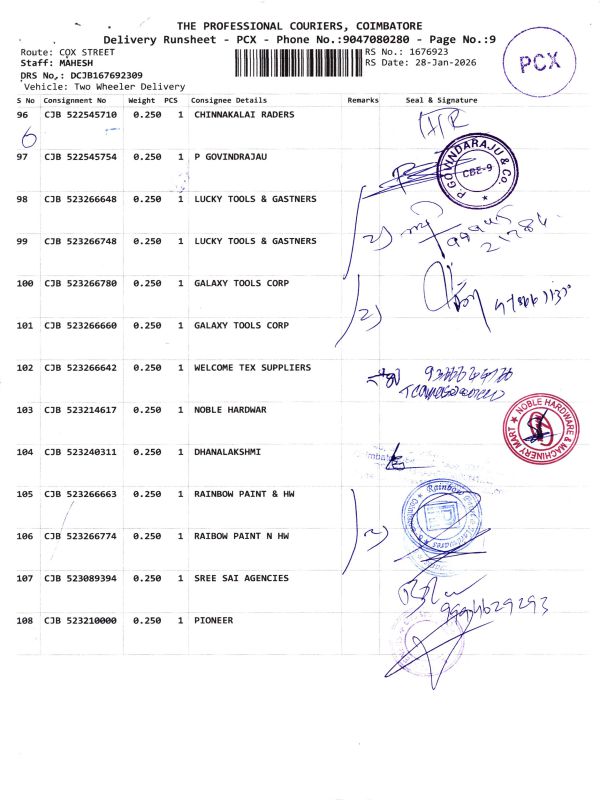 THE PROFESSIONAL COURIERS, COIMBATORE
Delivery Runsheet - PCX - Phone No.:9047080280 - Page No.:9
Route: COX STREET
RS No.: 1676923
Staff: MAHESH
RS Date: 28-Jan-2026
DRS No,: DCJB167692309
Vehicle: Two Wheeler Delivery
PCX
S No Consignment No Weight PCS Consignee Details Remarks Seal & Signature
96 CJB 522545710 0.250 1 CHINNAKALAI RADERS
6
97 CJB 522545754 0.250 1 P GOVINDRAJAU
P. GOVINDARAJU & Co. CBE-9
98 CJB 523266648 0.250 1 LUCKY TOOLS & GASTNERS
2)
99 CJB 523266748 0.250 1 LUCKY TOOLS & GASTNERS
100 CJB 523266780 0.250 1 GALAXY TOOLS CORP
2)
101 CJB 523266660 0.250 1 GALAXY TOOLS CORP
102 CJB 523266642 0.250 1 WELCOME TEX SUPPLIERS
103 CJB 523214617 0.250 1 NOBLE HARDWAR
NOBLE HARDWARE & MACHINERY MART
104 CJB 523240311 0.250 1 DHANALAKSHMI
105 CJB 523266663 0.250 1 RAINBOW PAINT & HW
Rainbow
106 CJB 523266774 0.250 1 RAIBOW PAINT N HW
2)
107 CJB 523089394 0.250 1 SREE SAI AGENCIES
9994629293
108 CJB 523210000 0.250 1 PIONEER